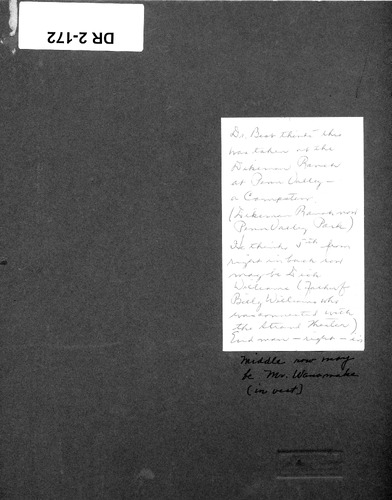 DR 2-172
Dr. Best thinks this
was taken at the
Dikeman Ranch
at Penn Valley -
a Campstow
(Dikeman Ranch now
Penn Valley Park)
He thinks 5th from
right in back row
may be Dick
Williams (Father of
Billy Williams who
was connected with
the Strand Theater)
End man - right - in
middle row may
be Mr. Wanamaker
(in vest)